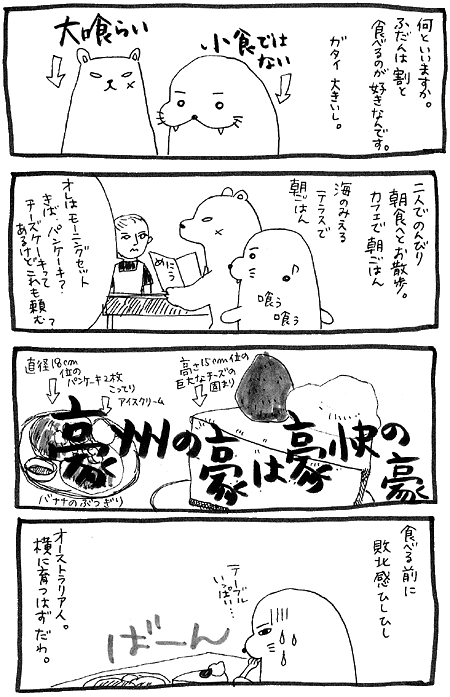 何といいますか。
ふだんは割と
食べるのが好きなんです。
ガタイ大きいし。
小食では
ない
大喰らい
二人でのんびり
朝食へとお散歩。
カフェで朝ごはん
海のみえる
テラスで
朝ごはん
♪
喰う
喰う
めにう
オレはモーニングセット
きば、パンケーキ?
チーズケーキって
あるけどこれも頼む?
高さ15cm位の
巨大なチーズの
固まり
直径18cm
位の
パンケーキ2枚
こってり
アイスクリーム
豪州の豪は豪快の豪
バナナのぶつぎり
食べる前に
敗北感ひしひし
テーブル
いっぱい…
ばーん
オーストラリア人。
横に育つはずだわ。